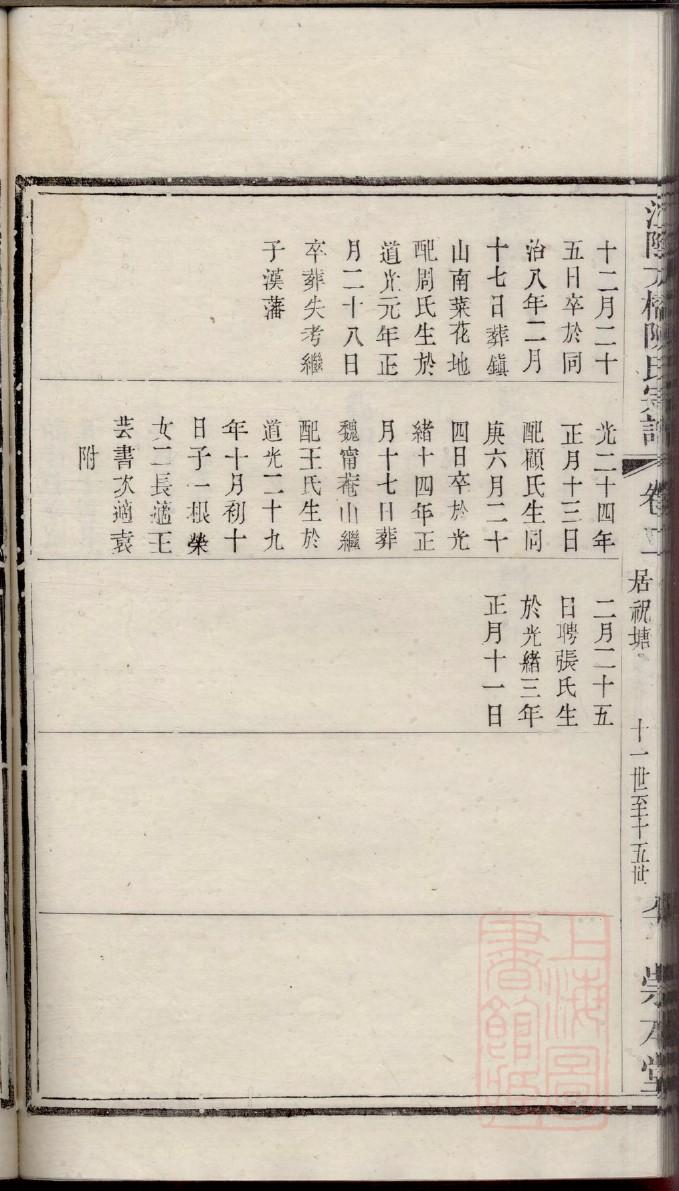 十二月二十
五日卒於同
治八年二月
十七日葬鎮
山南菜花地
配周氏生於
道光元年正
月二十八日
卒葬失考繼
子漢藩
光二十四年
正月十三日
配顧氏生同
庚六月二十
四日卒於光
緒十四年正
月十七日葬
魏甯菴山繼
配王氏生於
道光二十九
年十月初十
日子一根榮
女二長適王
芸書次適袁
附
二月二十五
日聘張氏生
於光緒三年
正月十一日
居祝塘
十一世至十五世
崇本堂
上海圖
書館藏